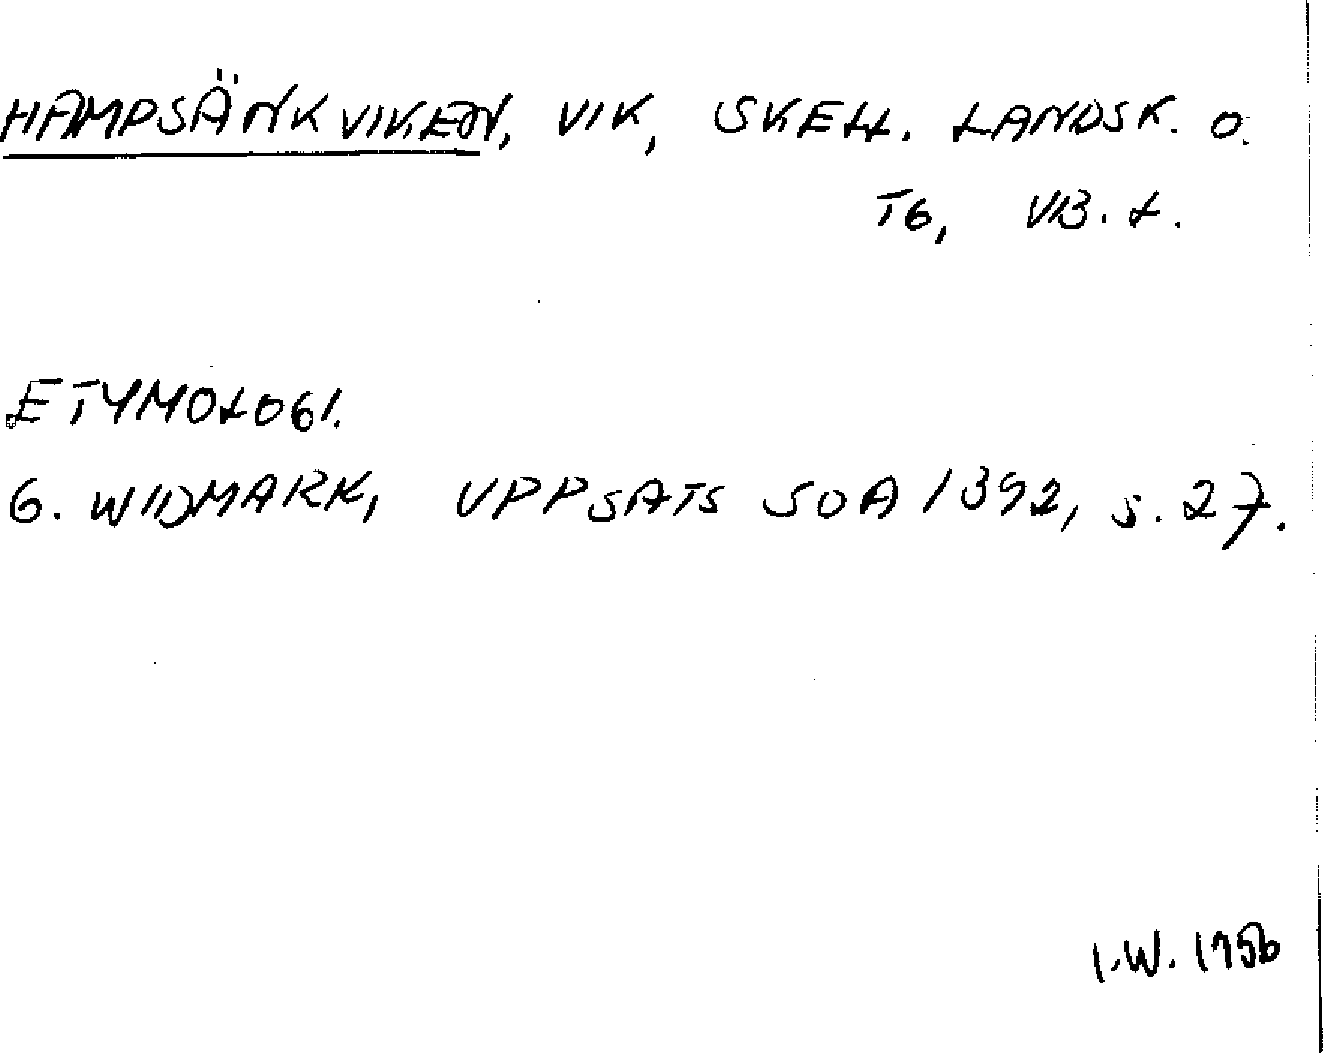 HAMPSÄNKVIKEN, VIK, SKELL. LANDSK. O.
TG, VB. L.
ETYMOLOGI.
G. WIDMARK, UPPSATS SOA 1392, S. 27.
I.W. 1956